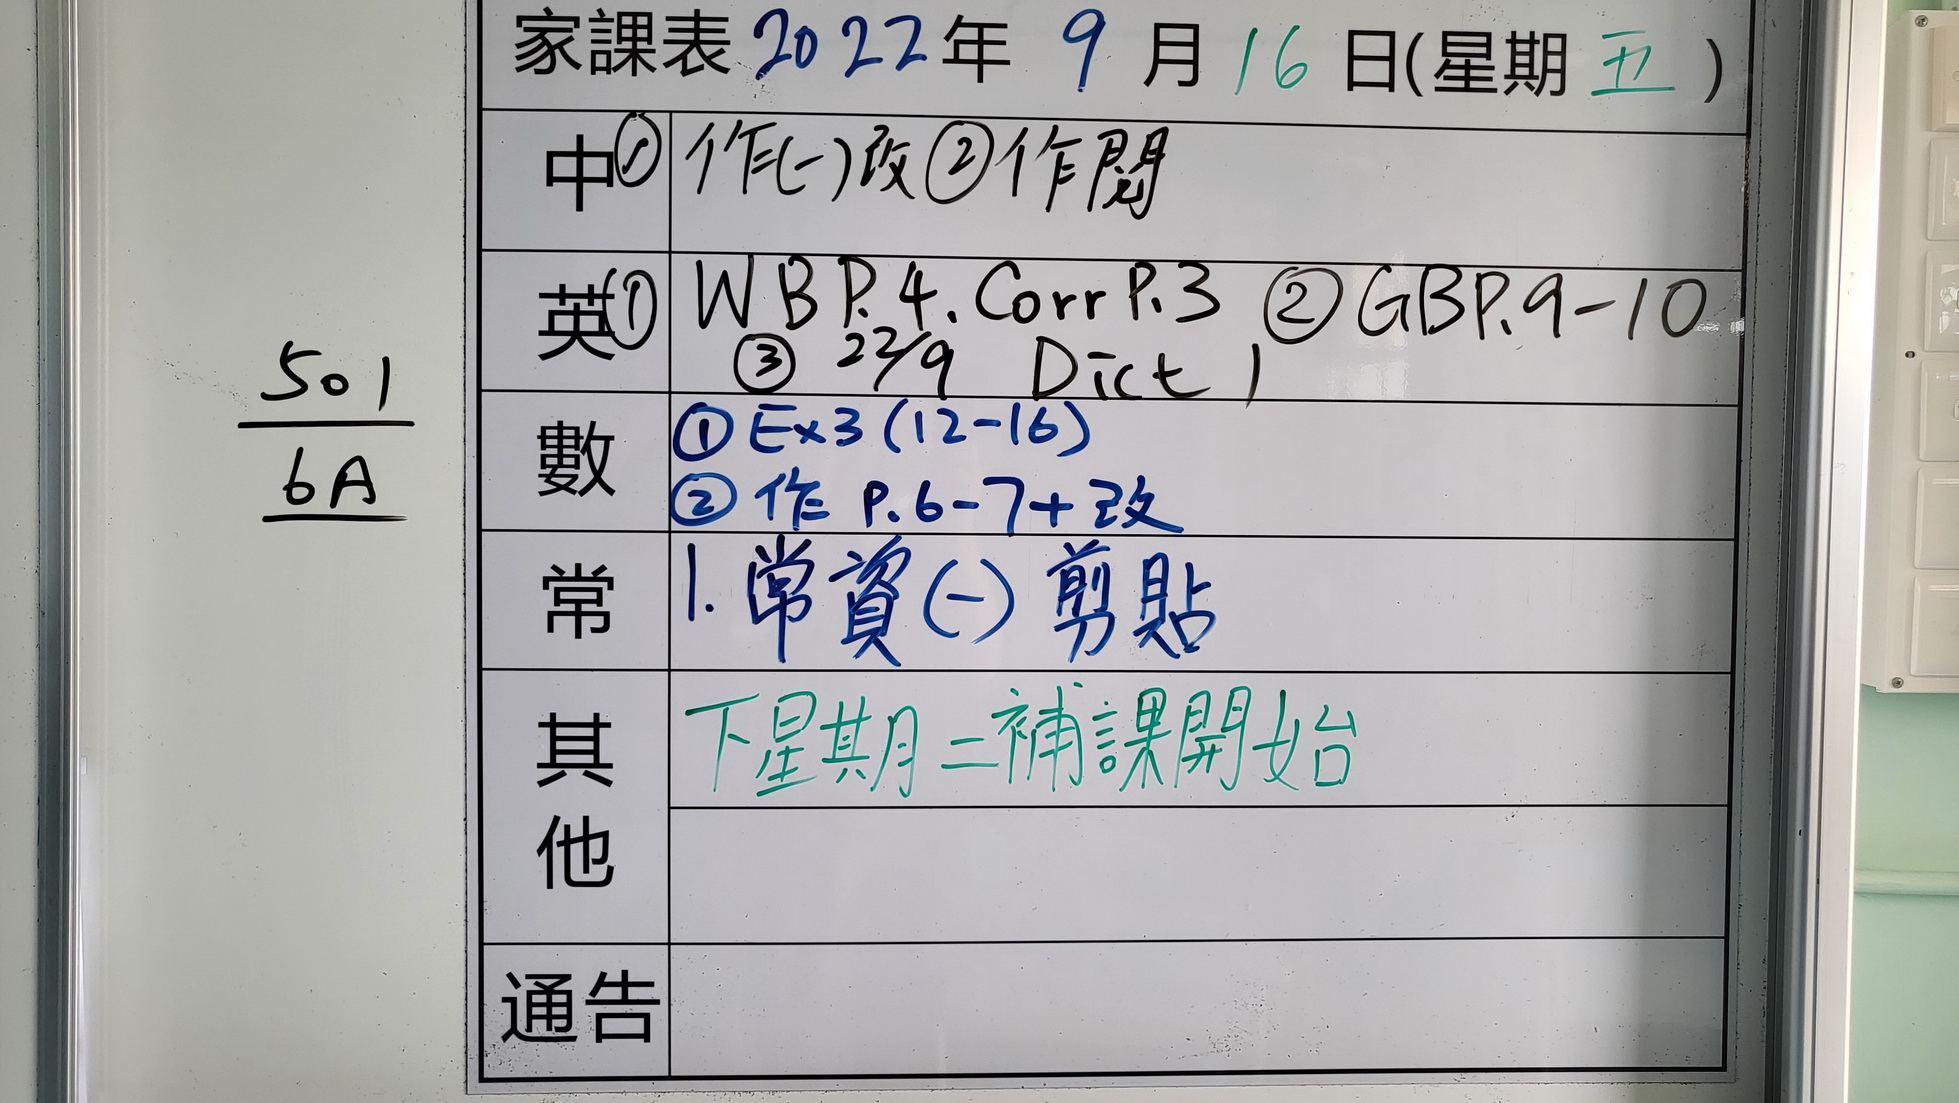 家課表 2022年 9 月 16 日(星期 五 )
中 ① 作(一)改 ② 作閱
英 ① WB P.4. Corr P.3 ② GB P.9-10
③ 22/9 Dict 1
數 ① Ex3 (12-16)
② 作 P.6-7 + 改
常 1. 常資(一) 剪貼
其他 下星期二補課開始
通告
501
6A